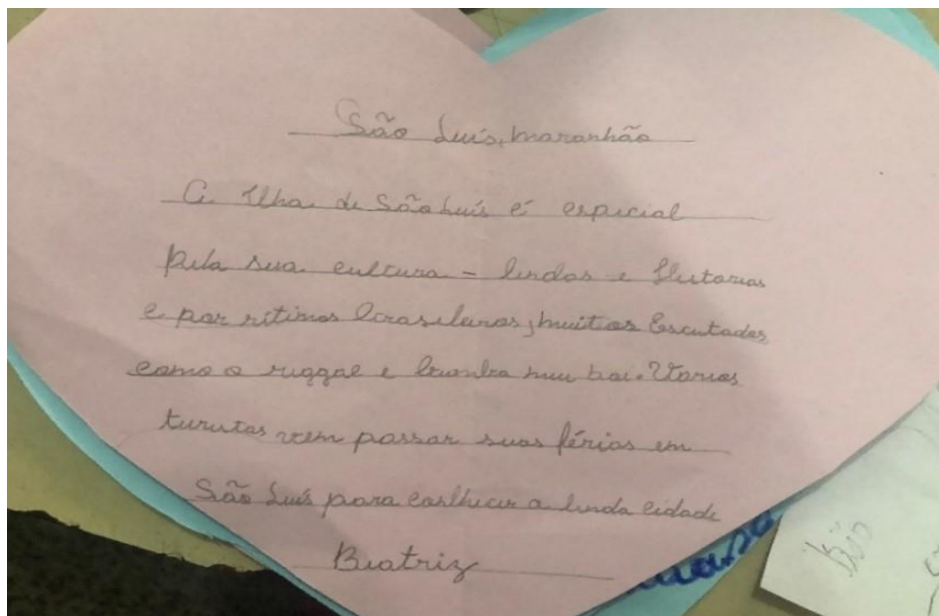 São Luís, maranhão
A Ilha de São Luís é especial
pela sua cultura - lindas e Histórias
e por rítimos brasileiros, muitos Escutados
como o reggae e bumba meu boi. Varias
turistas vem passar suas férias em
São Luís para conhecer a linda cidade
Beatriz